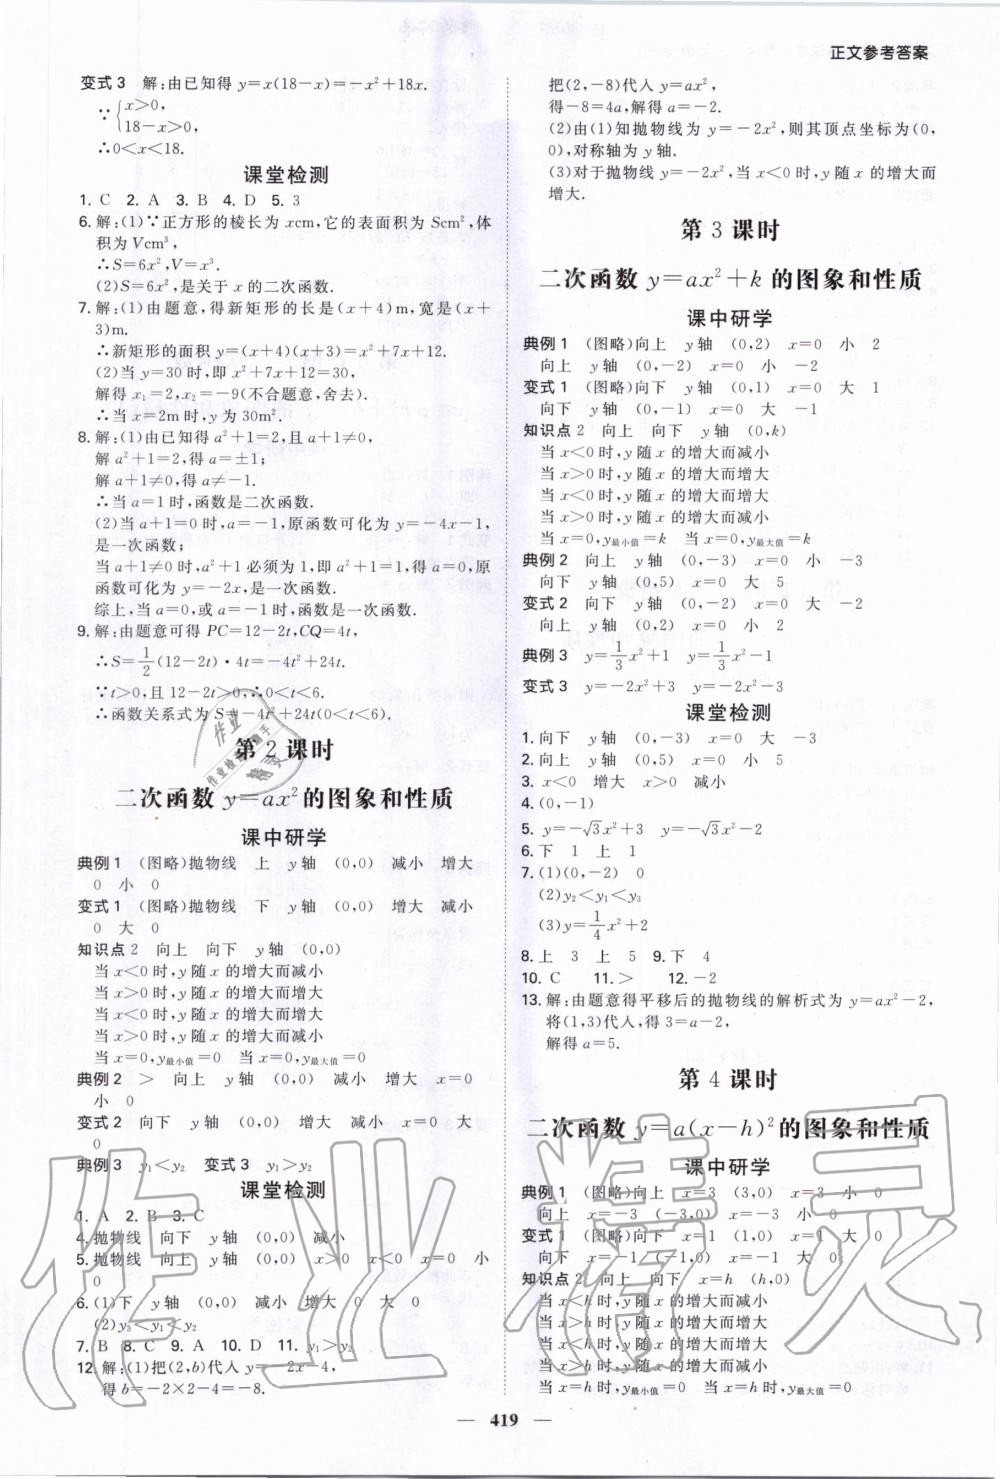 正文参考答案
变式 3 解:由已知得 y=x(18-x)=-x²+18x.
∵{x>0,
18-x>0,
∴0<x<18.
课堂检测
1. C 2. A 3. B 4. D 5. 3
6. 解:(1)∵正方形的棱长为 xcm,它的表面积为 Scm²,体
积为 Vcm³,
∴S=6x²,V=x³.
(2)S=6x²,是关于 x 的二次函数.
7. 解:(1)由题意,得新矩形的长是(x+4)m,宽是(x+
3)m.
∴新矩形的面积 y=(x+4)(x+3)=x²+7x+12.
(2)当 y=30时,即 x²+7x+12=30,
解得 x₁=2,x₂=-9(不合题意,舍去).
∴当 x=2m时,y为30m².
8. 解:(1)由已知得 a²+1=2,且 a+1≠0,
解 a²+1=2,得 a=±1;
解 a+1≠0,得 a≠-1.
∴当 a=1时,函数是二次函数.
(2)当 a+1=0时,a=-1,原函数可化为 y=-4x-1,
是一次函数;
当 a+1≠0时,a²+1必须为1,即 a=0,得 a=0,原
函数可化为 y=-2x,是一次函数.
综上,当 a=0,或 a=-1时,函数是一次函数.
9. 解:由题意可得 PC=12-2t,CQ=4t,
∴S=1/2(12-2t)·4t=-4t²+24t.
∵t>0,且12-2t>0,∴0<t<6.
∴函数关系式为 S=-4t²+24t(0<t<6).
第 2 课时
二次函数 y=ax² 的图象和性质
课中研学
典例 1 (图略)抛物线 上 y 轴 (0,0) 减小 增大
0 小 0
变式 1 (图略)抛物线 下 y 轴 (0,0) 增大 减小
0 大 0
知识点 2 向上 向下 y 轴 (0,0)
当 x<0时,y 随 x 的增大而减小
当 x>0时,y 随 x 的增大而增大
当 x<0时,y 随 x 的增大而增大
当 x>0时,y 随 x 的增大而减小
当 x=0,y最小值=0 当 x=0,y最大值=0
典例 2 > 向上 y 轴 (0,0) 减小 增大 x=0
小 0
变式 2 向下 y 轴 (0,0) 增大 减小 x=0 大
0
典例 3 y₁<y₂ 变式 3 y₁>y₂
课堂检测
1. A 2. B 3. C
4. 抛物线 向下 y 轴 (0,0) 减小
5. 抛物线 向上 y 轴 (0,0) x>0 x<0 x=0 小
0
6. (1)下 y 轴 (0,0) 减小 增大 0 大 0
(2)y₃<y₁<y₂
7. B 8. C 9. A 10. D 11. y₁>y₂
12. 解:(1)把(2,b)代入 y=-2x-4,
得 b=-2×2-4=-8.
把(2,-8)代入 y=ax²,
得-8=4a,解得 a=-2.
(2)由(1)知抛物线为 y=-2x²,则其顶点坐标为(0,
0),对称轴为 y 轴.
(3)对于抛物线 y=-2x²,当 x<0时,y 随 x 的增大而
增大.
第 3 课时
二次函数 y=ax²+k 的图象和性质
课中研学
典例 1 (图略)向上 y 轴 (0,2) x=0 小 2
向上 y 轴 (0,-2) x=0 小 -2
变式 1 (图略)向下 y 轴 (0,1) x=0 大 1
向下 y 轴 (0,-1) x=0 大 -1
知识点 2 向上 向下 y 轴 (0,k)
当 x<0时,y 随 x 的增大而减小
当 x>0时,y 随 x 的增大而增大
当 x<0时,y 随 x 的增大而增大
当 x>0时,y 随 x 的增大而减小
当 x=0,y最小值=k 当 x=0,y最大值=k
典例 2 向上 y 轴 (0,-3) x=0 小 -3
向下 y 轴 (0,5) x=0 大 5
变式 2 向下 y 轴 (0,-2) x=0 大 -2
向上 y 轴 (0,2) x=0 小 2
典例 3 y=1/3x²+1 y=1/3x²-1
变式 3 y=-2x²+3 y=-2x²-3
课堂检测
1. 向下 y 轴 (0,-3) x=0 大 -3
2. 向上 y 轴 (0,5) x=0 小 5
3. x<0 增大 x>0 减小
4. (0,-1)
5. y=-√3x²+3 y=-√3x²-2
6. 下 1 上 1
7. (1)(0,-2) 0
(2)y₂<y₁<y₃
(3)y=1/4x²+2
8. 上 3 上 5 9. 下 4
10. C 11. > 12. -2
13. 解:由题意得平移后的抛物线的解析式为 y=ax²-2,
将(1,3)代入,得 3=a-2,
解得 a=5.
第 4 课时
二次函数 y=a(x-h)² 的图象和性质
课中研学
典例 1 (图略)向上 x=3 (3,0) x=3 小 0
向上 x=-3 (-3,0) x=-3 小 0
变式 1 (图略)向下 x=1 (1,0) x=1 大 0
向下 x=-1 (-1,0) x=-1 大 0
知识点 2 向上 向下 x=h (h,0)
当 x<h时,y 随 x 的增大而减小
当 x>h时,y 随 x 的增大而增大
当 x<h时,y 随 x 的增大而增大
当 x>h时,y 随 x 的增大而减小
当 x=h时,y最小值=0 当 x=h时,y最大值=0
— 419 —
作业精灵